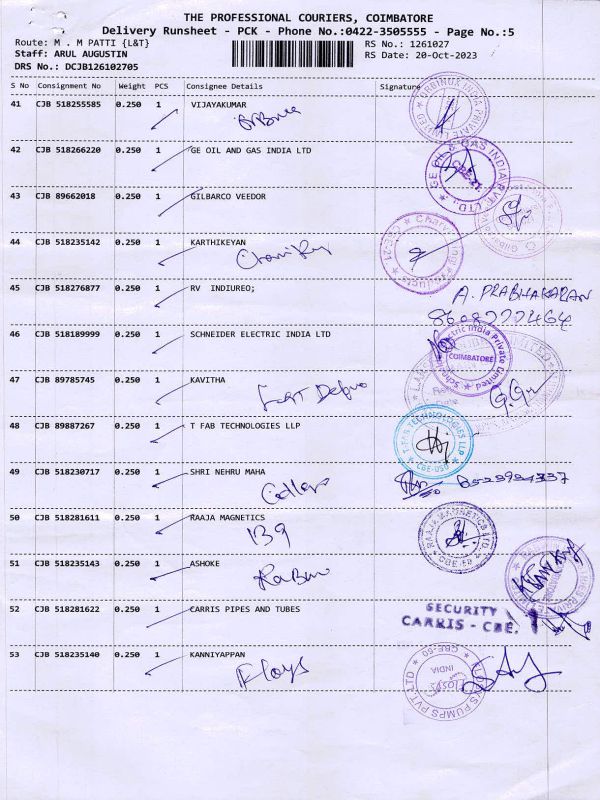 THE PROFESSIONAL COURIERS, COIMBATORE
Delivery Runsheet - PCK - Phone No.:0422-3505555 - Page No.:5
Route: M . M PATTI {L&T}
RS No.: 1261027
Staff: ARUL AUGUSTIN
RS Date: 20-Oct-2023
DRS No.: DCJB126102705
S No Consignment No Weight PCS Consignee Details Signature
41 CJB 518255585 0.250 1 VIJAYAKUMAR
42 CJB 518266220 0.250 1 GE OIL AND GAS INDIA LTD
GE OIL & GAS INDIA PVT. LTD.
43 CJB 89662018 0.250 1 GILBARCO VEEDOR
44 CJB 518235142 0.250 1 KARTHIKEYAN
CBE-21
45 CJB 518276877 0.250 1 RV INDIUREO;
A. PRABHAKARAN
46 CJB 518189999 0.250 1 SCHNEIDER ELECTRIC INDIA LTD
Schneider Electric India Private Limited
COIMBATORE
47 CJB 89785745 0.250 1 KAVITHA
48 CJB 89887267 0.250 1 T FAB TECHNOLOGIES LLP
T-FAB TECHNOLOGIES LLP
49 CJB 518230717 0.250 1 SHRI NEHRU MAHA
50 CJB 518281611 0.250 1 RAAJA MAGNETICS
RAAJA MAGNETICS LTD
51 CJB 518235143 0.250 1 ASHOKE
52 CJB 518281622 0.250 1 CARRIS PIPES AND TUBES
SECURITY
CARRIS - CBE.
53 CJB 518235140 0.250 1 KANNIYAPPAN
Flosys
FLOSYS PUMPS PVT LTD
CBE-60
INDIA